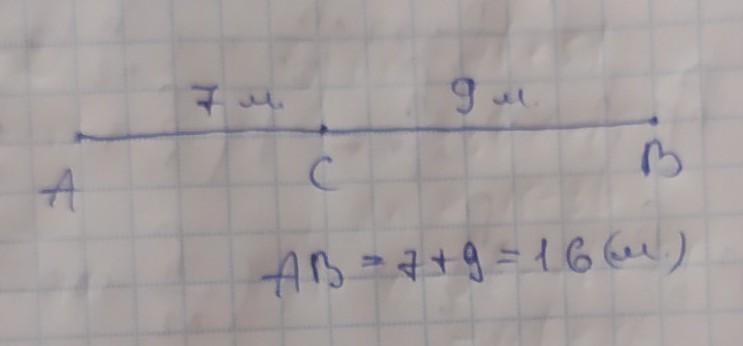 7 м. 9 м.
A C B
AB = 7 + 9 = 16 (м.)